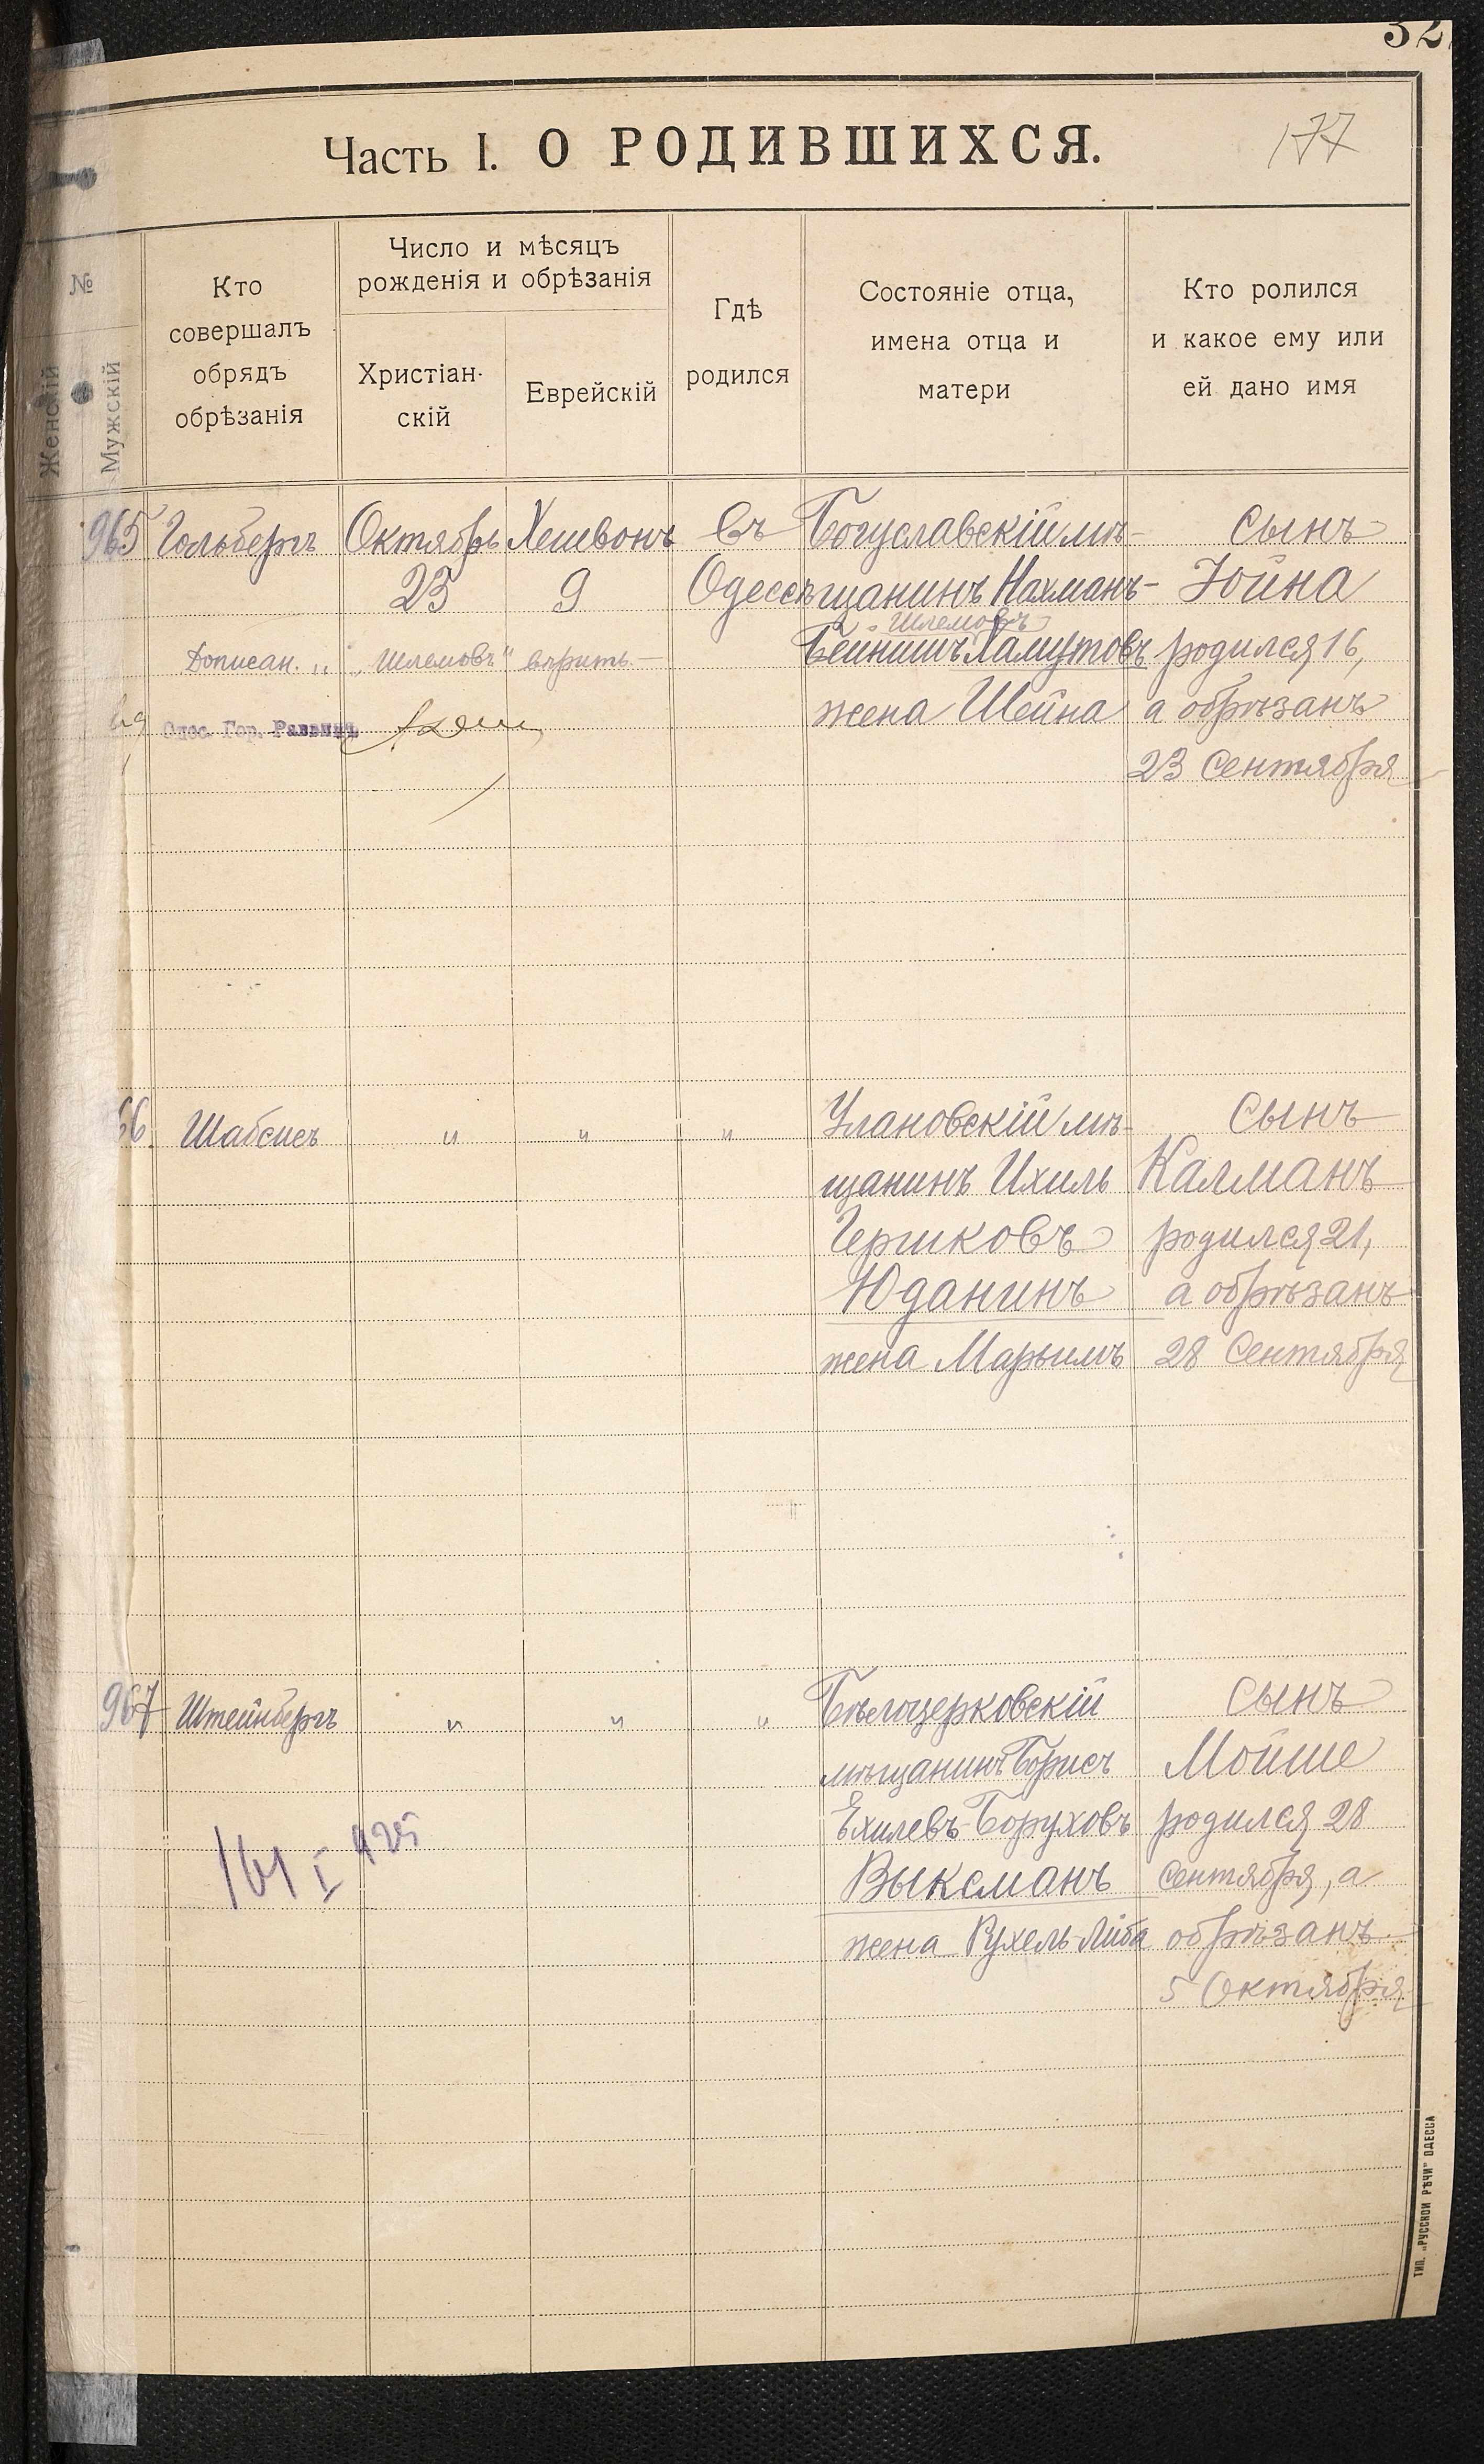 32
Часть I. О РОДИВШИХСЯ.
177
№
Женскій
Мужскій
Кто
совершалъ
обрядъ
обрѣзанія
Число и мѣсяцъ
рожденія и обрѣзанія
Христіан-
скій
Еврейскій
Гдѣ
родился
Состояніе отца,
имена отца и
матери
Кто ролился
и какое ему или
ей дано имя
965 Гольбергъ Октябрь Хешвонъ Въ Богуславскій мѣ- Сынъ
25 9 Одессѣ щанинъ Нахманъ- Іойна
Шлемовъ
Дописан. „Шлемовъ" вѣрить.— Бейнишъ Хамутовъ родился 16,
Одес. Гор. Раввинъ жена Шейна а обрѣзанъ
23 Сентября
66. Шабсисъ " " " Улановскій мѣ- Сынъ
щанинъ Ихиль Калманъ
Гершковъ родился 21,
Юданинъ а обрѣзанъ
жена Марьимъ 28 Сентября
967 Штейнбергъ " " " Бѣлоцерковскій Сынъ
мѣщанинъ Борисъ Мойше
Ехилевъ-Боруховъ родился 28
Выксманъ Сентября, а
жена Рухель-Либа обрѣзанъ
5 Октября
ТИП. „РУССКОЙ РѢЧИ" ОДЕССА